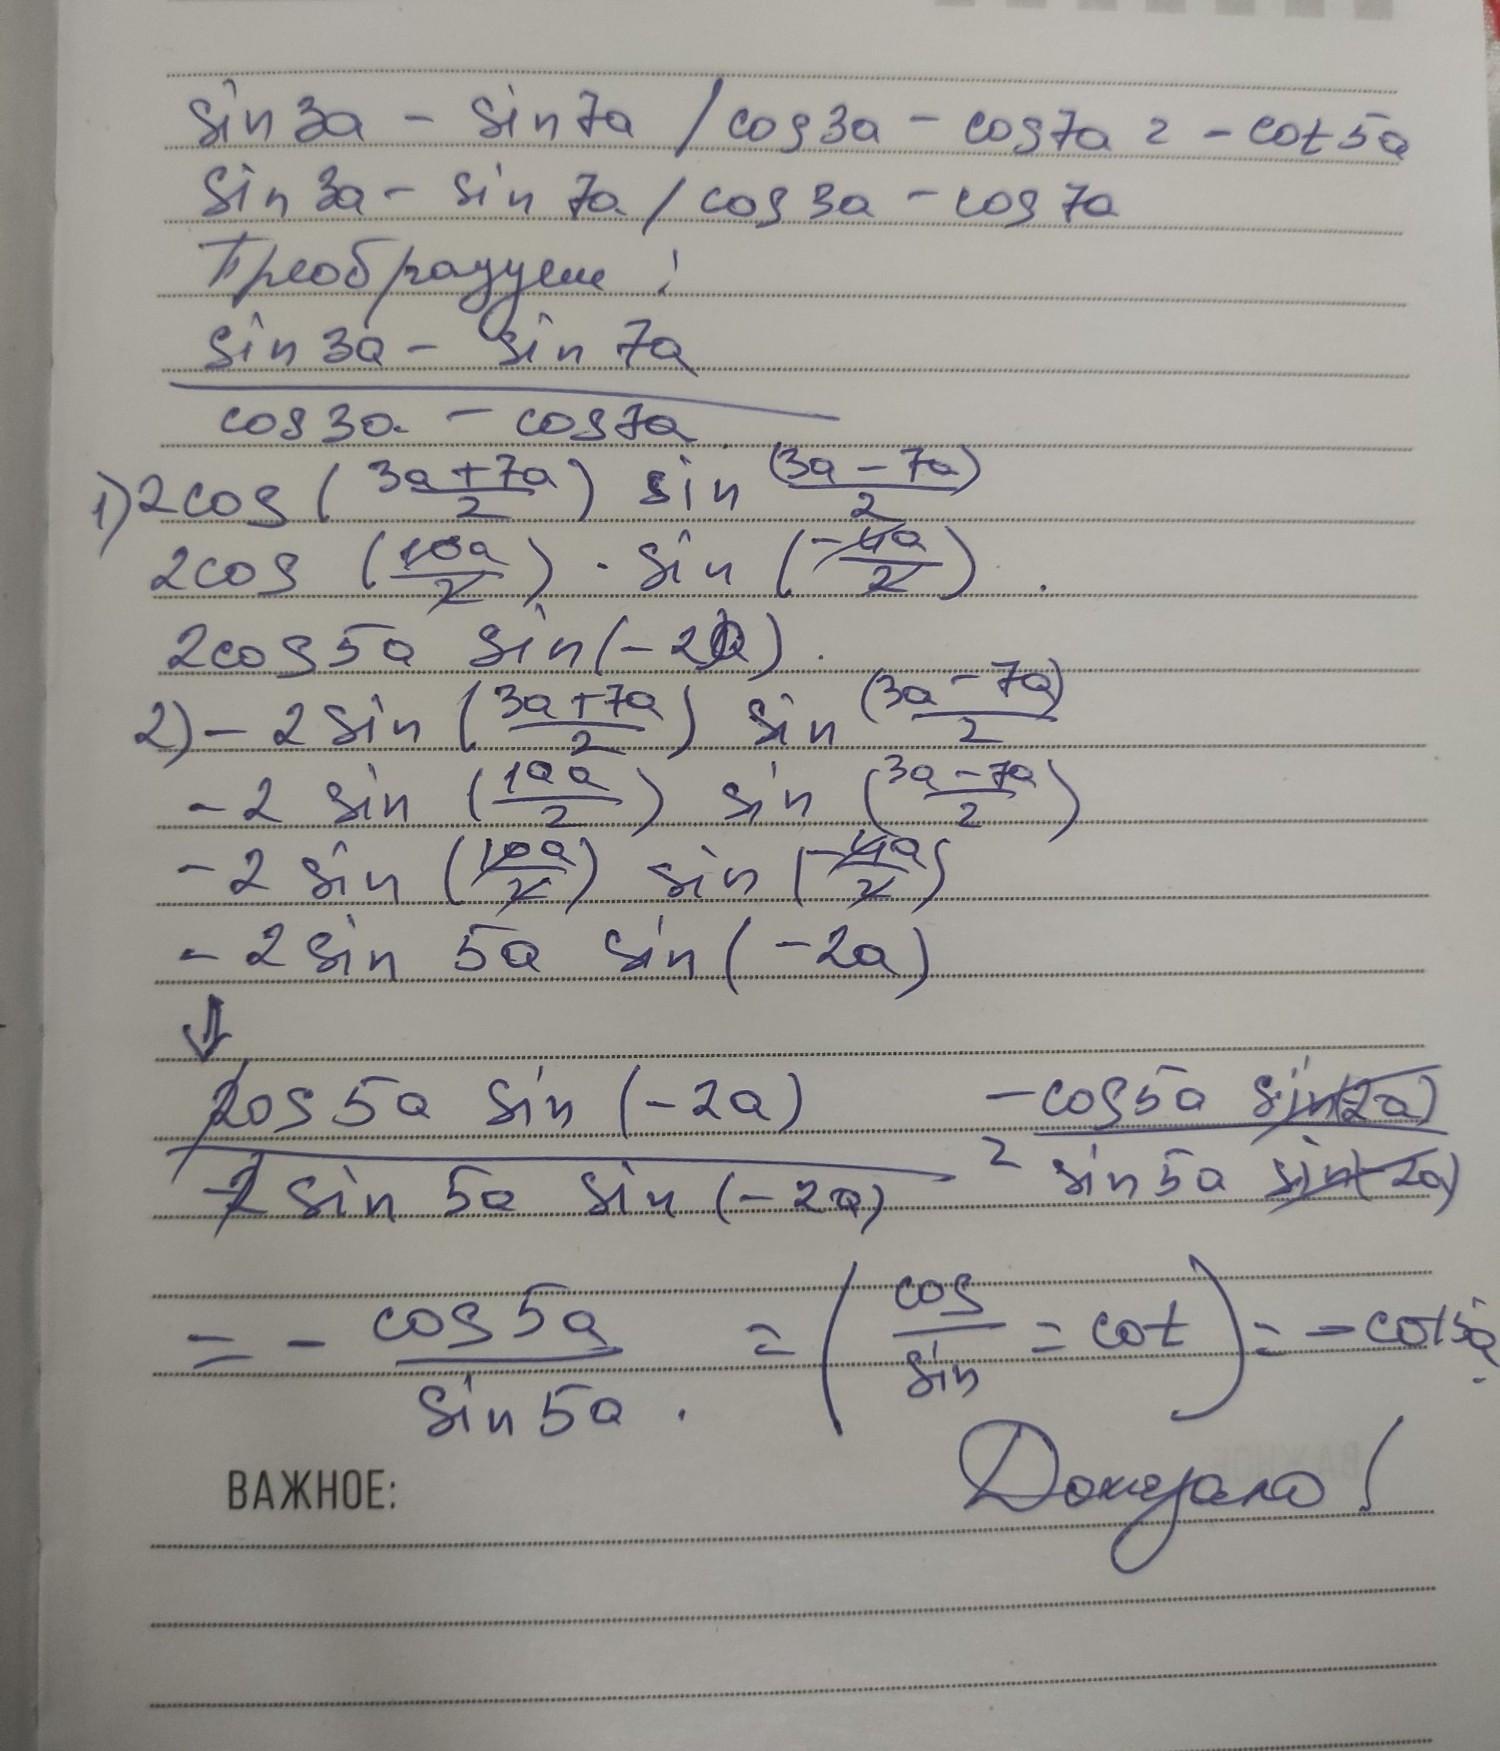 sin3a - sin7a / cos3a - cos7a = - cot5a
sin3a - sin7a / cos3a - cos7a
Преобразуем:
sin3a - sin7a
cos3a - cos7a
1) 2cos((3a+7a)/2) sin((3a-7a)/2)
2cos(10a/2) · sin(-4a/2).
2cos5a sin(-2a).
2) -2sin((3a+7a)/2) sin((3a-7a)/2)
-2 sin(10a/2) sin((3a-7a)/2)
-2 sin(10a/2) sin(-4a/2)
-2 sin 5a sin(-2a)
↓
2cos5a sin(-2a) / -2 sin 5a sin(-2a) = -cos5a sin(-2a) / sin5a sin(-2a)
= - cos5a / sin5a. = (cos/sin = cot) = -cot5a.
Доказано!
ВАЖНОЕ: